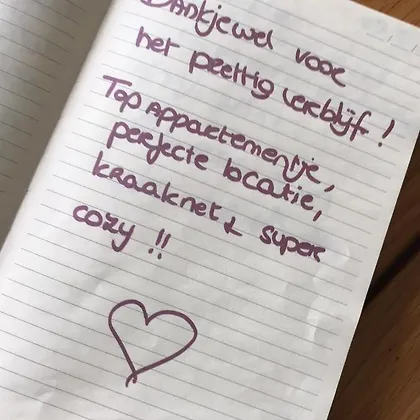 Dankjewel voor
het prettig verblijf!
Top Appartementje,
perfecte locatie,
kraaknet & super
cozy !!